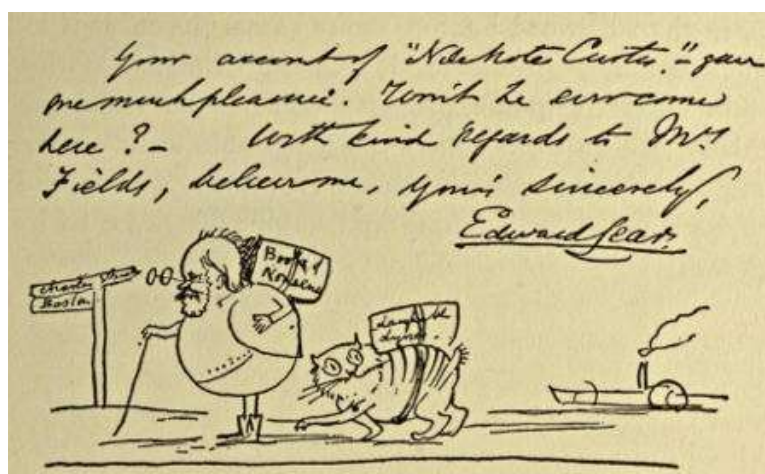 Your account of "Nickotes Curtis." - gave
me much pleasure. Won't he ever come
here? - With kind regards to Mrs
Fields, believe me, Yours sincerely,
Edward Lear.
Book of
Nonsense
Charles Street
Boston
Laughable
Lyrics.